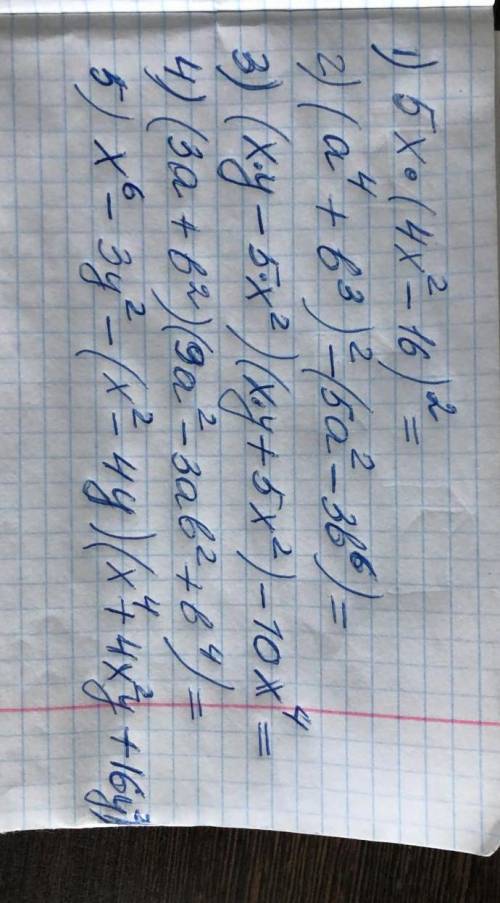 1) 5x·(4x² - 16)² =
2) (a⁴ + b³)² - (5a² - 3b⁶) =
3) (x·y - 5·x²)(x·y + 5x²) - 10x⁴ =
4) (3a + b²)(9a² - 3ab² + b⁴) =
5) x⁶ - 3y² - (x² - 4y)(x⁴ + 4x²y + 16y²)